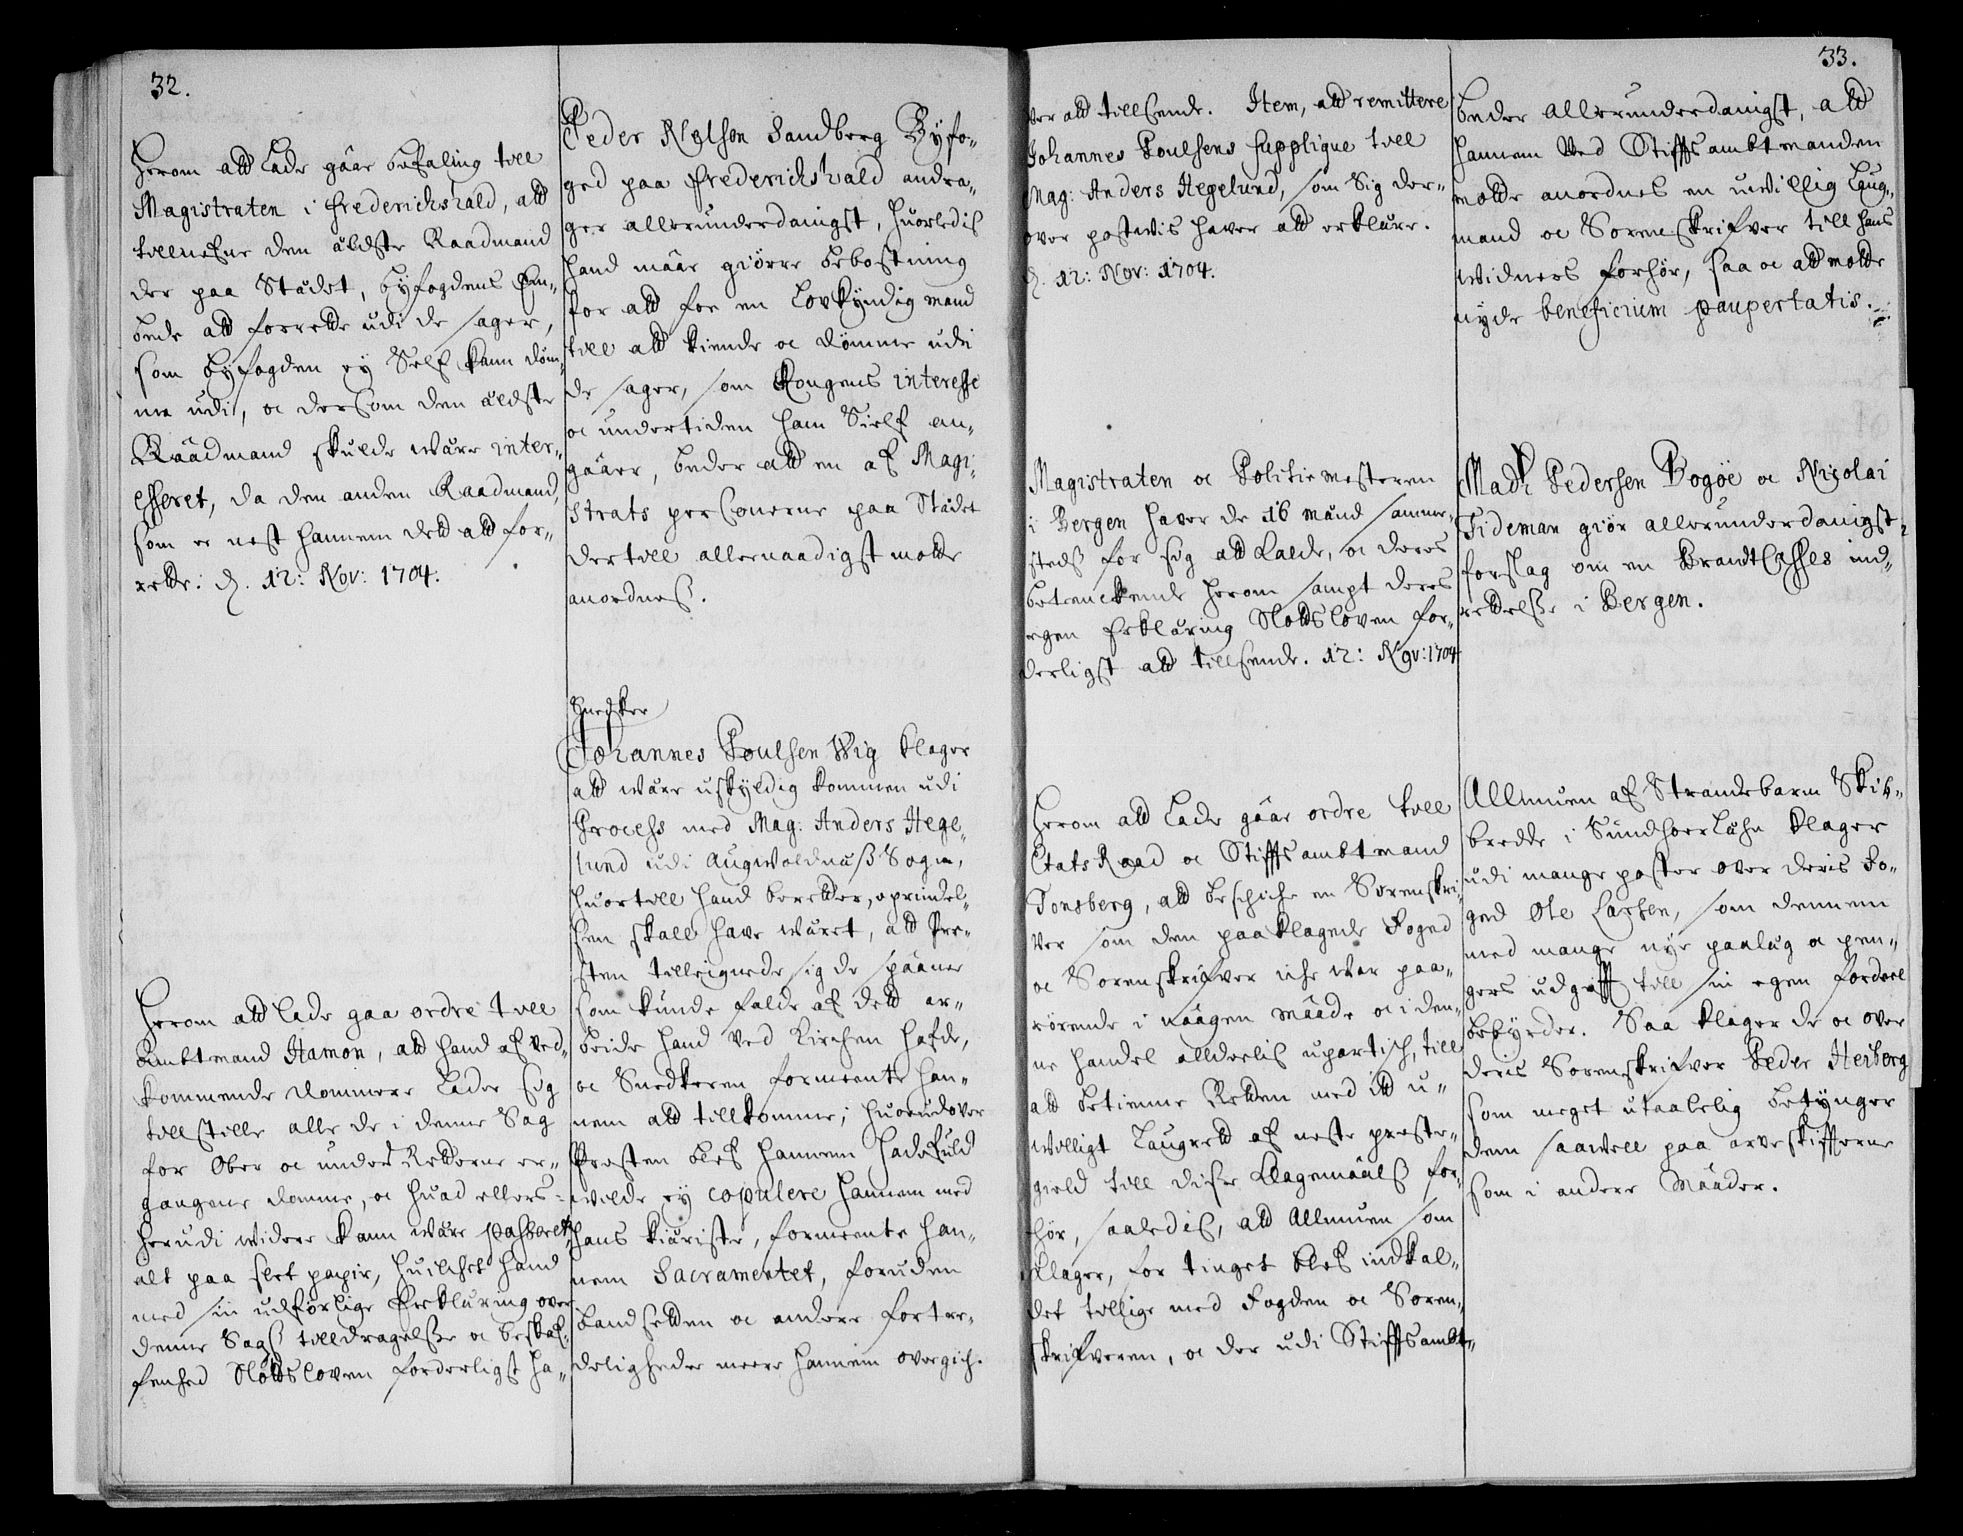 32.
Herom att Lade gåar befaling till
Magistraten i Frederichshald, att
tillnefne den äldste Raadmand
der paa Städet, byfogdens Em-
bede att forrette udi de sager,
som byfogden ey Self kann döm-
me udi, oc dersom den äldste
Raadmand skulde wäre inter-
esseret, da den anden Raadmand,
som er nest hannem dett att for-
rette. d. 12: Nov: 1704.
Herom att lade gaa ordre till
Ambtmand Hamon, att hand af ved-
kommende dommere Lader sig
tillstille alle de i denne Sag
for Ober oc under Retterne er-
gangene domme, oc huad ellers
herudi widere kann wäre passeret
alt paa slet papir, huilchet hand
med sin udförlige Erkläring over
denne Sags tilldragelsse oc beskaf-
fenhed Slottsloven forderligst ha-
Peder Nelsen Sandberg Byfo-
ged paa Frederichshald andra-
ger allerunderdanigst, huorledis
hand måae giörre bekostning
for att foe en Lovkyndig mand
till att kiende oc dömme udi
de sager, som Kongens interesse
oc undertiden ham Sielf an-
gåaer, beder att en af Magi-
strats personerne paa Städet
dertill allernaadigst motte
anordnes.
Snedker
Johannes Poulsen Wig klager
att wäre uskyldig kommen udi
Process med Mag: Anders Hege-
lund udi Augwoldnäss Sogn,
huortill hand beretter, oprindel-
sen skall have wäret, att Pre-
sten tilleignede sig de spåaner
som kunde falde af dett ar-
beide hand ved Kirchen hafde,
oc Snedkeren formeente han-
nem att tillkomme; huorudover
Presten blef hannem hadefuld
wilde ey copulere hannem med
hans kiäriste, formeente han-
nem Sacramentet, foruden
bandsetten oc andere fortre-
deligheder meere hannem overgich.
ver att tillsende. Item, att remittere
Johannes Poulsens supplique till
Mag: Anders Hegelund, som Sig der-
over postvis haver att erkläre.
d. 12: Nov: 1704.
Magistraten oc Politiemesteren
i Bergen haver de 16 mänd samme-
steds for sig att kalde, oc deres
betenckende herom sampt deres
egen Erkläring Slottsloven for-
derligst att tillsende. 12: Nov: 1704
Herom att Lade gåae ordre till
Etats Raad oc Stiftsambtmand
Tonsberg, att beschiche en Sorenskri-
ver som den paaklagede Foged
oc Sorenskrifver iche war paa-
rörende i nåagen Måade oc i den-
ne handel alldeelis upartisch, till
att betienne Retten med itt u-
willigt Laugrett af neste preste-
gield till disse Klagemåals for-
hör, saaledis, att Allmuen som
klager, for tinget blef indkal-
det tillige med Fogden oc Soren-
skrifveren, oc der udi Stiftsambt-
33.
beder allerunderdanigst, att
hannem Ved Stiftsambtmanden
motte anordnes en uwillig Laug-
mand oc Sorenskrifver till hans
widners forhör, saa oc att motte
nyde beneficium paupertatis.
Mads Pedersen Bogöe oc Nicolai
Tideman giör allerunderdanigst
forslag om en Brandt Casses ind-
rettelsse i Bergen.
Allmuen af Strandebarm Skib-
bredde i Sundhoerlähn klager
udi mange poster over deris Fo-
ged Ole Larsen, som dennem
med mange nye paaläg oc pen-
gers udgift till sin egen fordeel
bebyrder. Saa klager de oc over
deris Sorenskrifver Peder Heiberg
som meget utaalelig betynger
dem saawell paa arveskifterne
som i andere Måader.